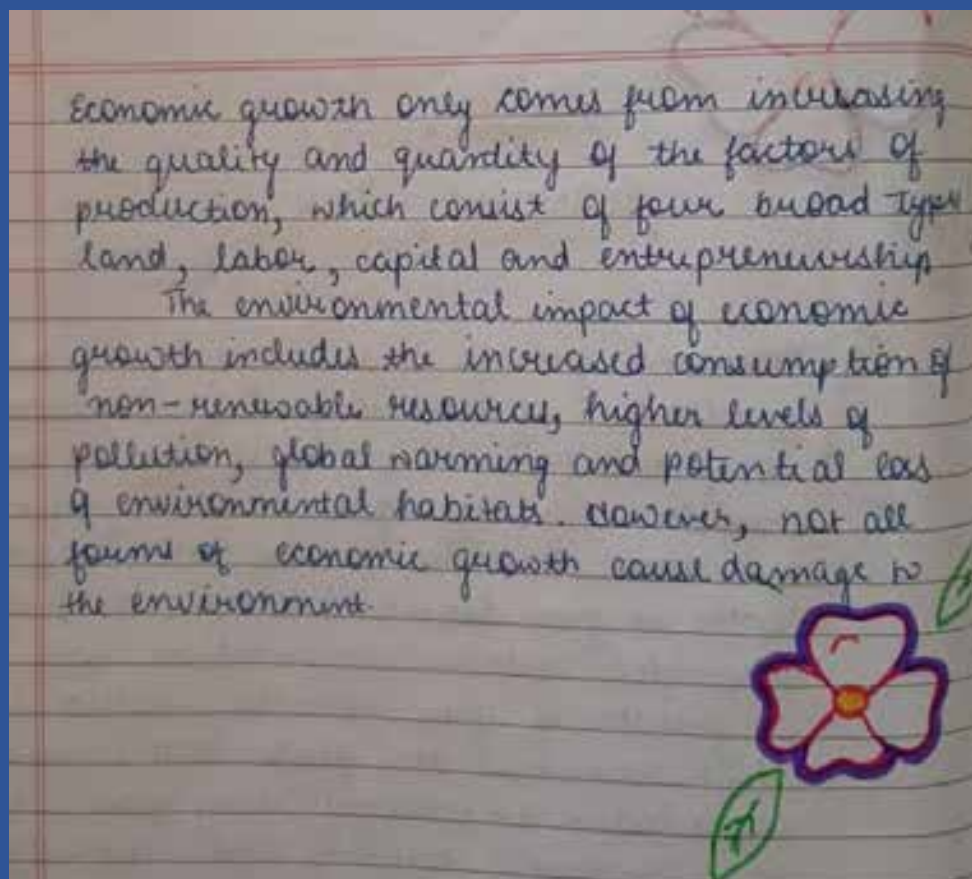 Economic growth only comes from increasing
the quality and quantity of the factors of
production, which consist of four broad types
land, labor, capital and entrepreneurship
The environmental impact of economic
growth includes the increased consumption of
non-renewable resources, higher levels of
pollution, global warming and potential loss
of environmental habitats. However, not all
forms of economic growth cause damage to
the environment.